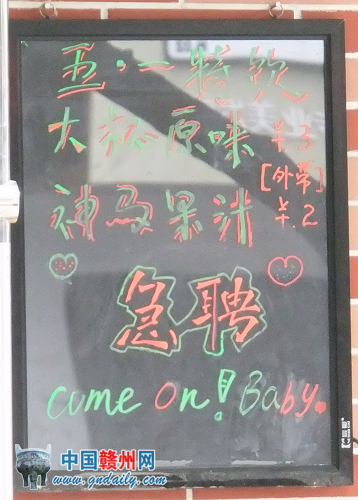 五·一特饮
大杯原味 ￥3
[外带]
神马果汁 ￥2
急聘
come On! Baby.
中国赣州网
www.gndaily.com